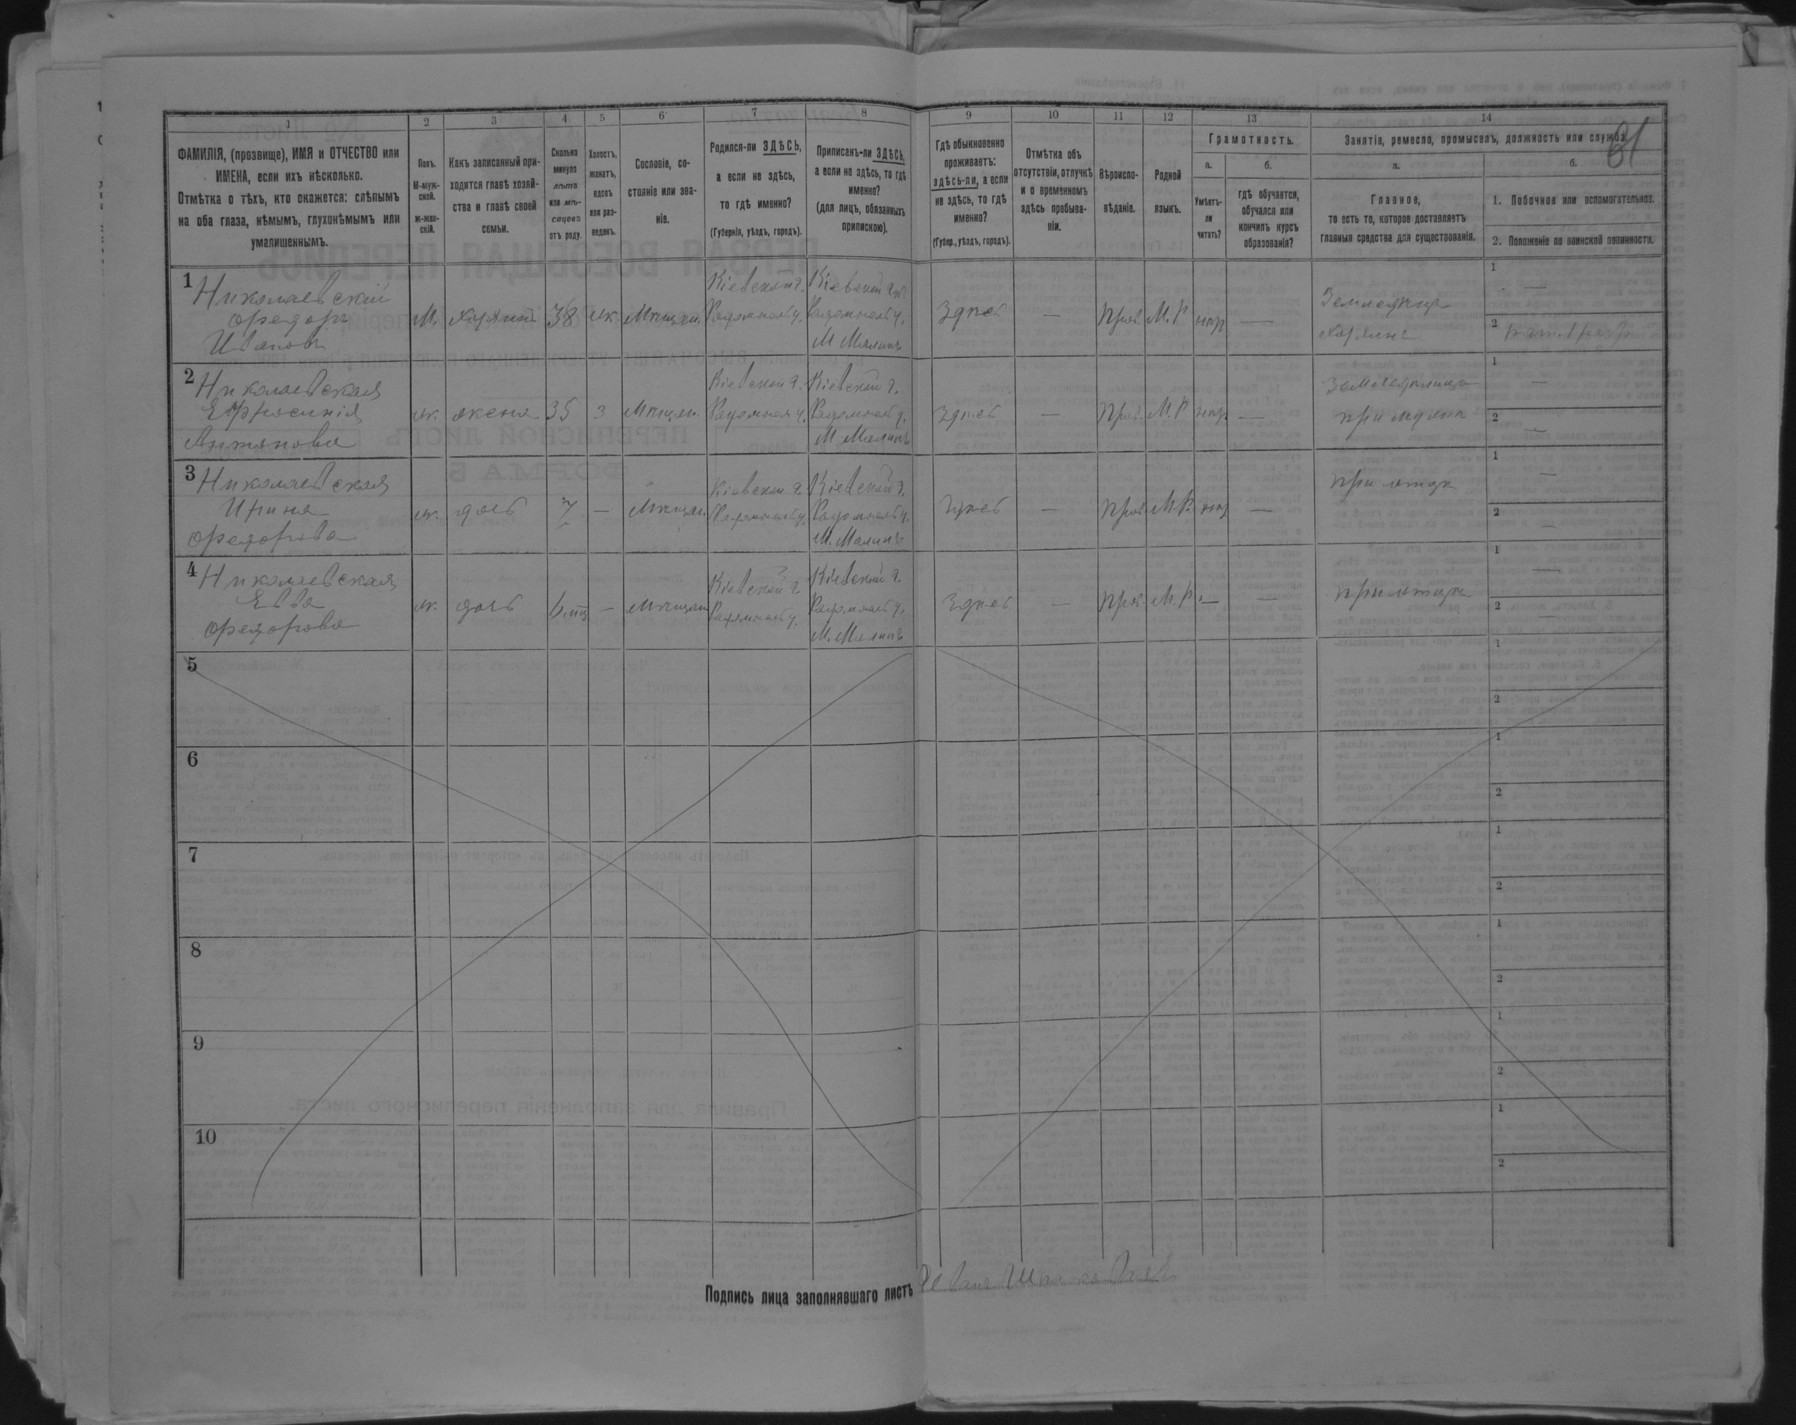 61
1
ФАМИЛІЯ, (прозвище), ИМЯ и ОТЧЕСТВО или
ИМЕНА, если ихъ нѣсколько.
Отмѣтка о тѣхъ, кто окажется: слѣпымъ
на оба глаза, нѣмымъ, глухонѣмымъ или
умалишеннымъ.
2
Полъ.
М-муж-
ской.
Ж-жен-
скій.
3
Какъ записанный при-
ходится главѣ хозяй-
ства и главѣ своей
семьи.
4
Сколько
минуло
лѣтъ
или мѣ-
сяцевъ
отъ роду.
5
Холостъ,
женатъ,
вдовъ
или раз-
веденъ.
6
Сословіе, со-
стояніе или зва-
ніе.
7
Родился-ли ЗДѢСЬ,
а если не здѣсь,
то гдѣ именно?
(Губернія, уѣздъ, городъ).
8
Приписанъ-ли ЗДѢСЬ,
а если не здѣсь, то гдѣ
именно?
(для лицъ, обязанныхъ
припискою).
9
Гдѣ обыкновенно
проживаетъ:
здѣсь-ли, а если
не здѣсь, то гдѣ
именно?
(Губер., уѣздъ, городъ).
10
Отмѣтка объ
отсутствіи, отлучкѣ
и о временномъ
здѣсь пребыва-
ніи.
11
Вѣроиспо-
вѣданіе.
12
Родной
языкъ.
13
Грамотность.
а.
Умѣетъ-
ли
читать?
б.
гдѣ обучается,
обучался или
кончилъ курсъ
образованія?
14
Занятія, ремесло, промыселъ, должность или служба.
а.
Главное,
то есть то, которое доставляетъ
главныя средства для существованія.
б.
1. Побочное или вспомогательное.
2. Положеніе по воинской повинности.
1
Николаевскій
Федоръ
Ивановъ
М.
38
Мѣщан.
Кіевской г.
Радомысл у.
Кіевской г.
Радомысл у.
М Малинъ
Здѣсь
—
Прав.
М. Р
—
1
—
2
2
Николаевская
Ефросинія
Антонова
ж.
35
з
Мѣщан.
Кіевской г.
Радомысл у.
Кіевской г.
Радомысл у.
М Малинъ
Здѣсь
—
Прав.
М. Р
—
при мужѣ
1
—
2
—
3
Николаевская
Ирина
Федорова
ж.
дочь
7
—
Мѣщан.
Кіевской г.
Радомысл у.
Кіевской г.
Радомысл у.
М. Малинъ
Здѣсь
—
Прав.
М. Р
—
при отцѣ
1
—
2
—
4
Николаевская
Евва
Федорова
ж.
дочь
6 мц
—
Мѣщан.
Кіевской г.
Радомысл у.
Кіевской г.
Радомысл у.
М. Малинъ
Здѣсь
—
Прав.
М. Р
—
—
при отцѣ
1
—
2
—
5
1
2
6
1
2
7
1
2
8
1
2
9
1
2
10
1
2
Подпись лица заполнявшаго листъ